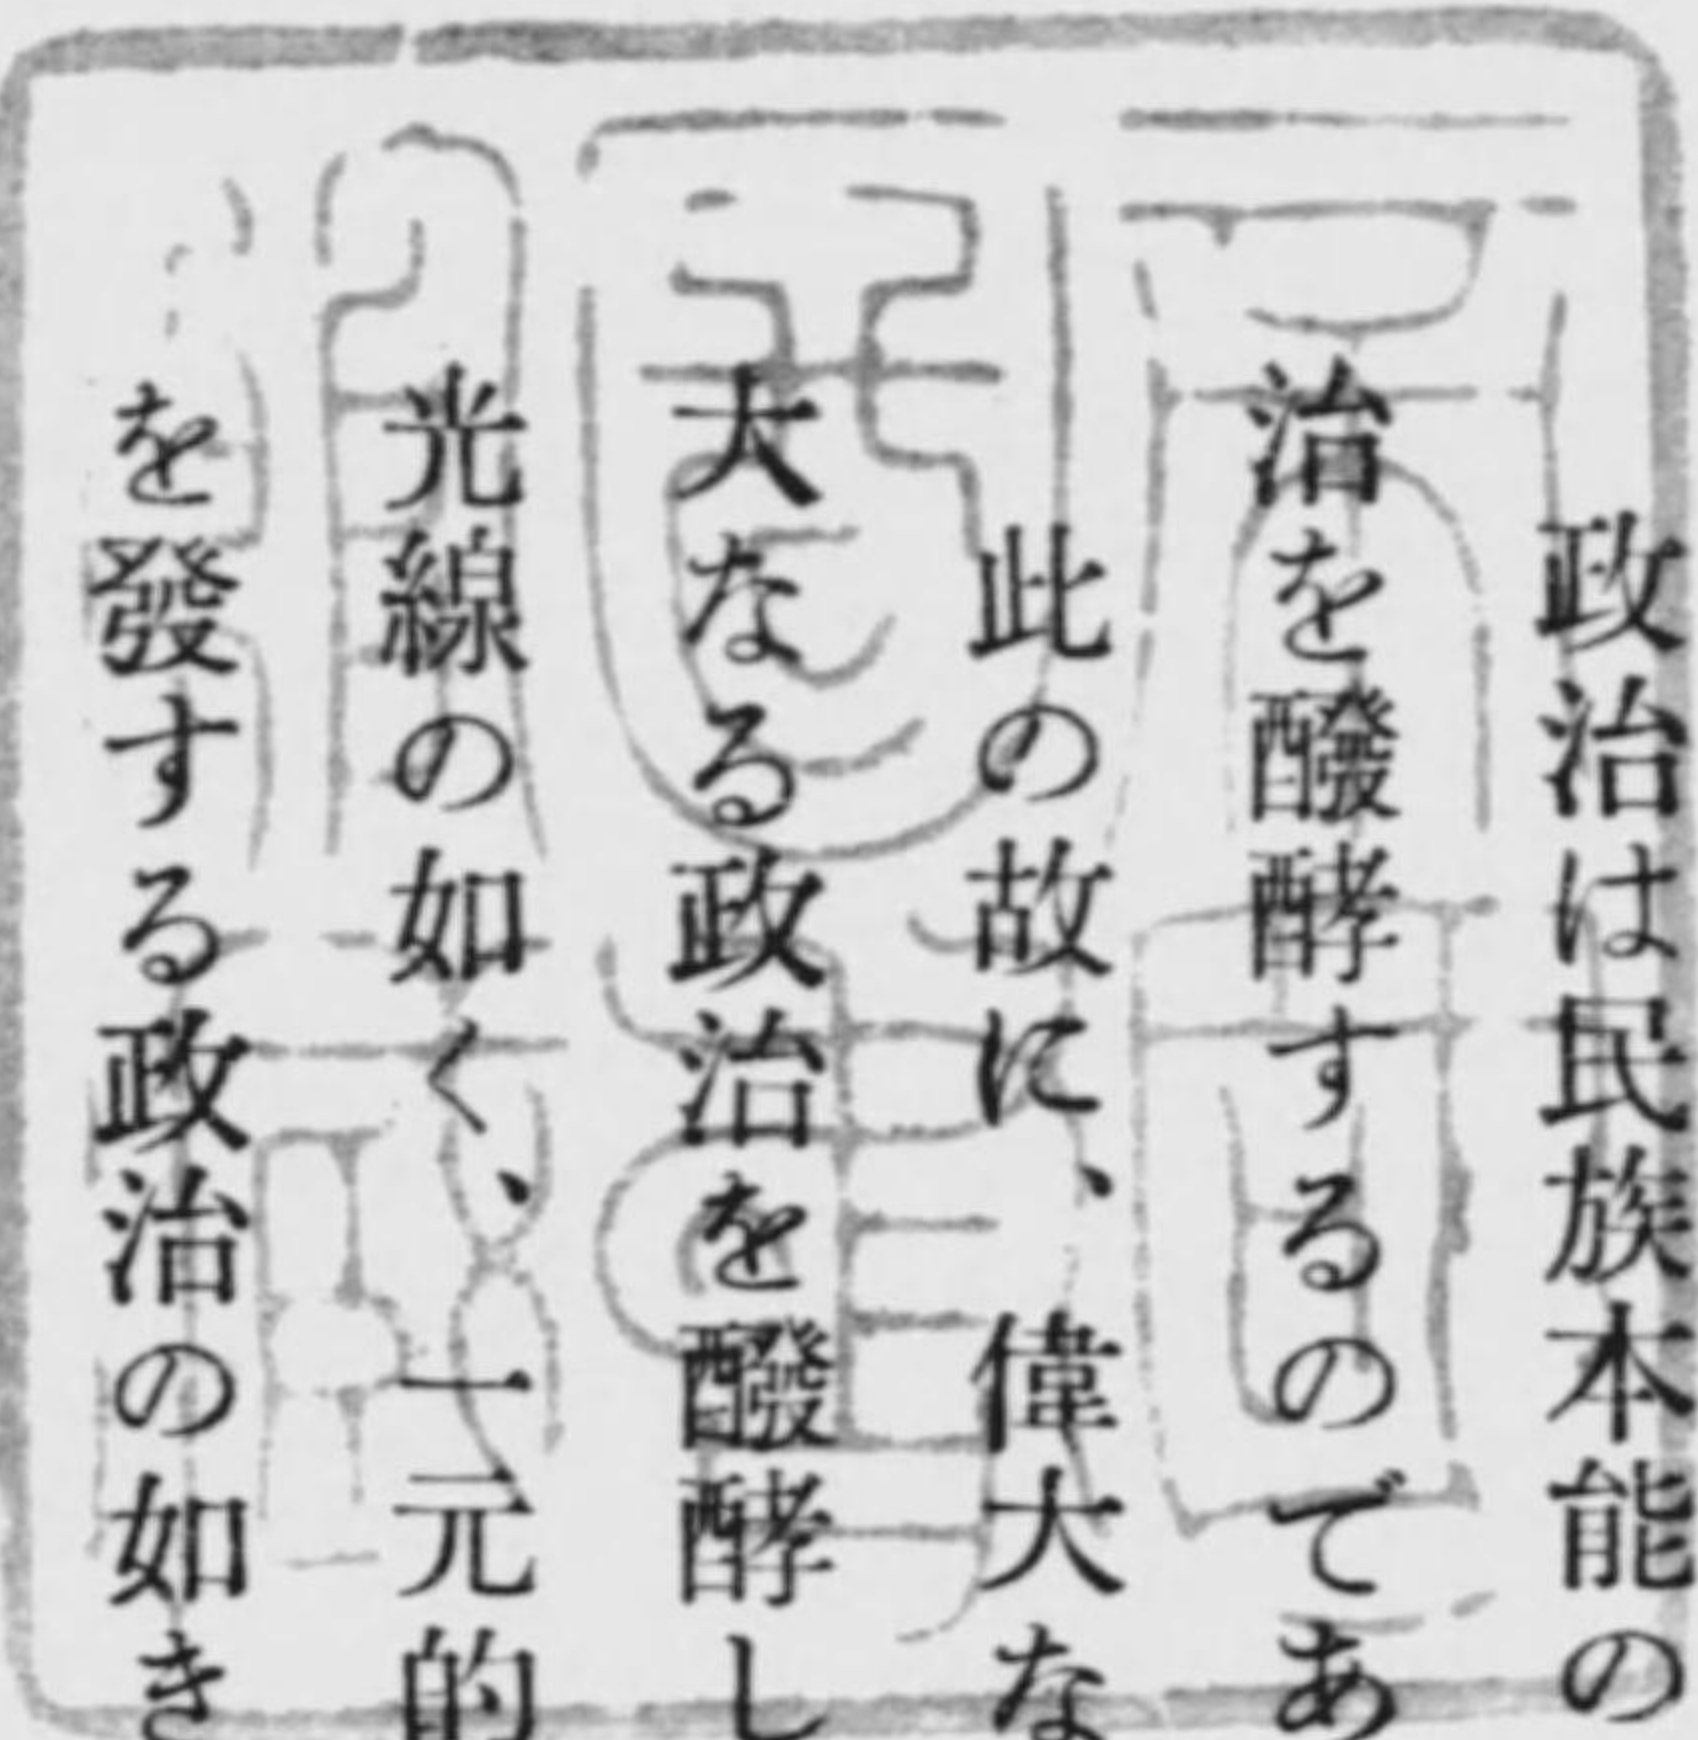 政治は民族本能の
治を醱酵するのであ
此の故に、偉大な
大なる政治を醱酵し
光線の如く、一元的
を發する政治の如き